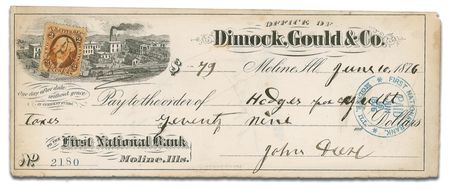 OFFICE OF
Dimock, Gould & Co.
$ 79 Moline, Ill. June 10, 1876
One day after date
without grace
Pay to the order of Hodges for
taxes Seventy Nine Dollars
First National Bank
Moline, Ills.
No. 2180
John Deere
FIRST NAT. BANK